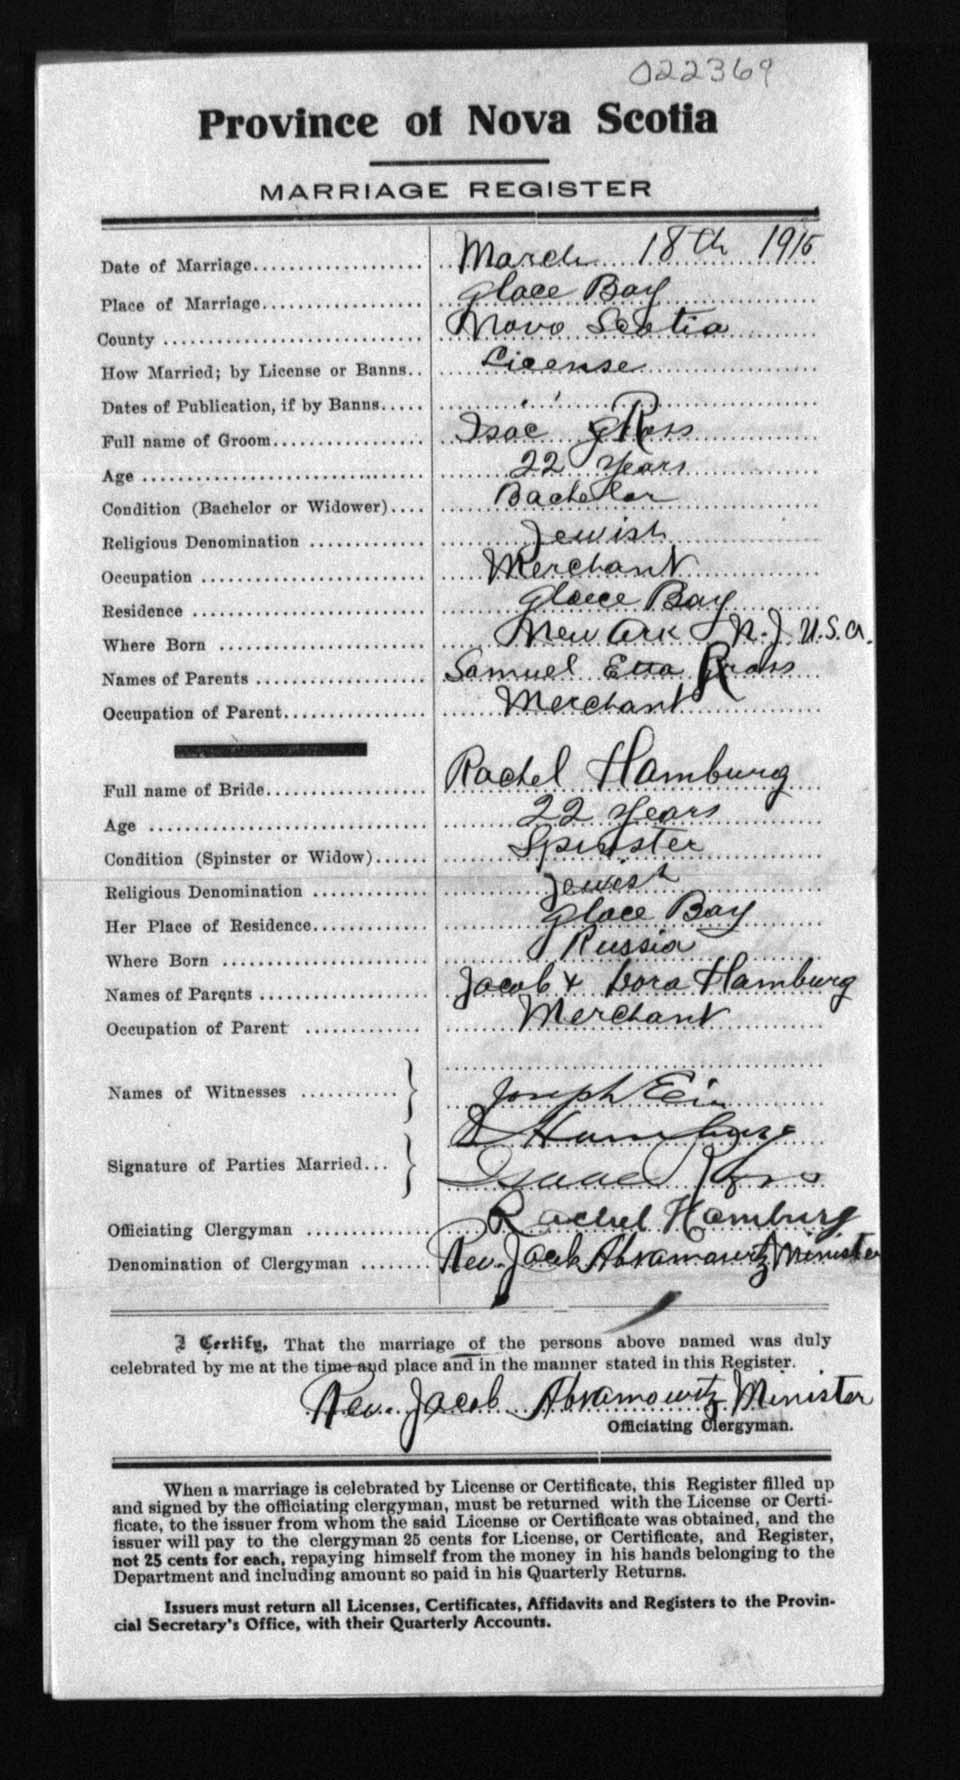 022369
Province of Nova Scotia
MARRIAGE REGISTER
Date of Marriage.................... March 18th 1915
Place of Marriage................... Glace Bay
County .............................. Novo Scotia
How Married; by License or Banns.. License
Dates of Publication, if by Banns.....
Full name of Groom.................. Isac Ross
Age ................................. 22 years
Condition (Bachelor or Widower).... Bachellor
Religious Denomination ............. Jewish
Occupation .......................... Merchant
Residence ........................... Glaece Bay
Where Born ........................ New Ark N.J. U.S.A.
Names of Parents .................... Samuel Etta Ross
Occupation of Parent................ Merchant
Full name of Bride................... Rachel Hamburg
Age ................................. 22 years
Condition (Spinster or Widow)...... Spinster
Religious Denomination ............. Jewish
Her Place of Residence............. Glace Bay
Where Born ........................ Russia
Names of Parents .................... Jacob & Dora Hamburg
Occupation of Parent .............. Merchant
Names of Witnesses ........... } Joseph Ein
Hamburg
Signature of Parties Married... } Isaac Ross
Officiating Clergyman .............. Rachel Hamburg
Denomination of Clergyman ........ Rev. Jacob Abramowitz Minister
I Certify, That the marriage of the persons above named was duly
celebrated by me at the time and place and in the manner stated in this Register.
Rev. Jacob Abramowitz Minister
Officiating Clergyman.
When a marriage is celebrated by License or Certificate, this Register filled up
and signed by the officiating clergyman, must be returned with the License or Certi-
ficate, to the issuer from whom the said License or Certificate was obtained, and the
issuer will pay to the clergyman 25 cents for License, or Certificate, and Register,
not 25 cents for each, repaying himself from the money in his hands belonging to the
Department and including amount so paid in his Quarterly Returns.
Issuers must return all Licenses, Certificates, Affidavits and Registers to the Provin-
cial Secretary's Office, with their Quarterly Accounts.